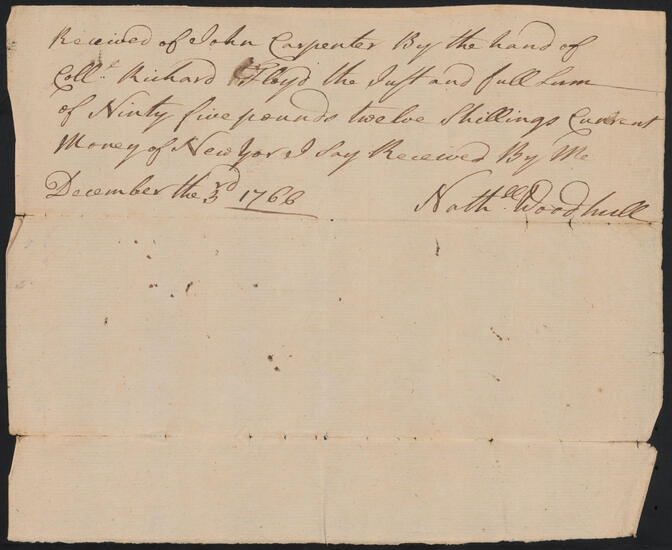 Received of John Carpenter By the hand of
Coll.l Richard Floyd the Just and full Sum
of Ninty five pounds twelve Shillings Current
Money of New Yor I Say Received By Me
December the 3rd 1766 Nathll. Woodhull